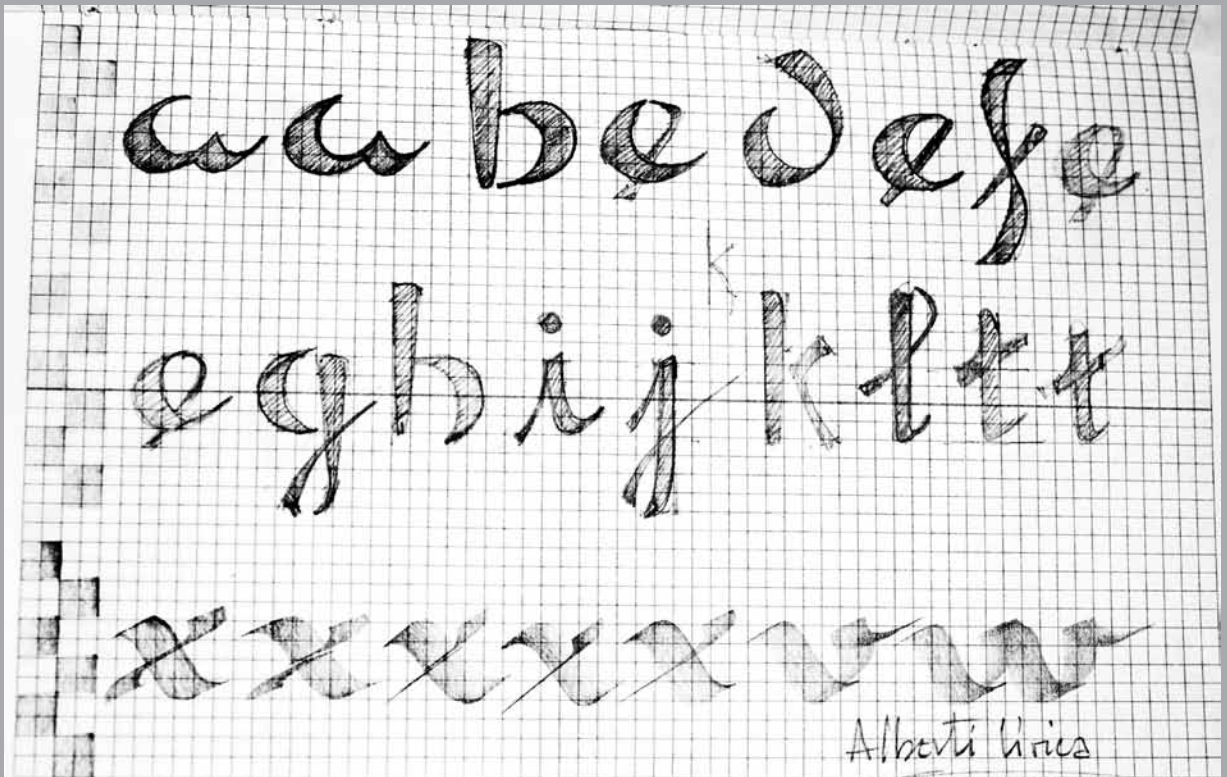 a a b e d e f e
e g h i j k l t t
x x x x x v w
Alberti lírica